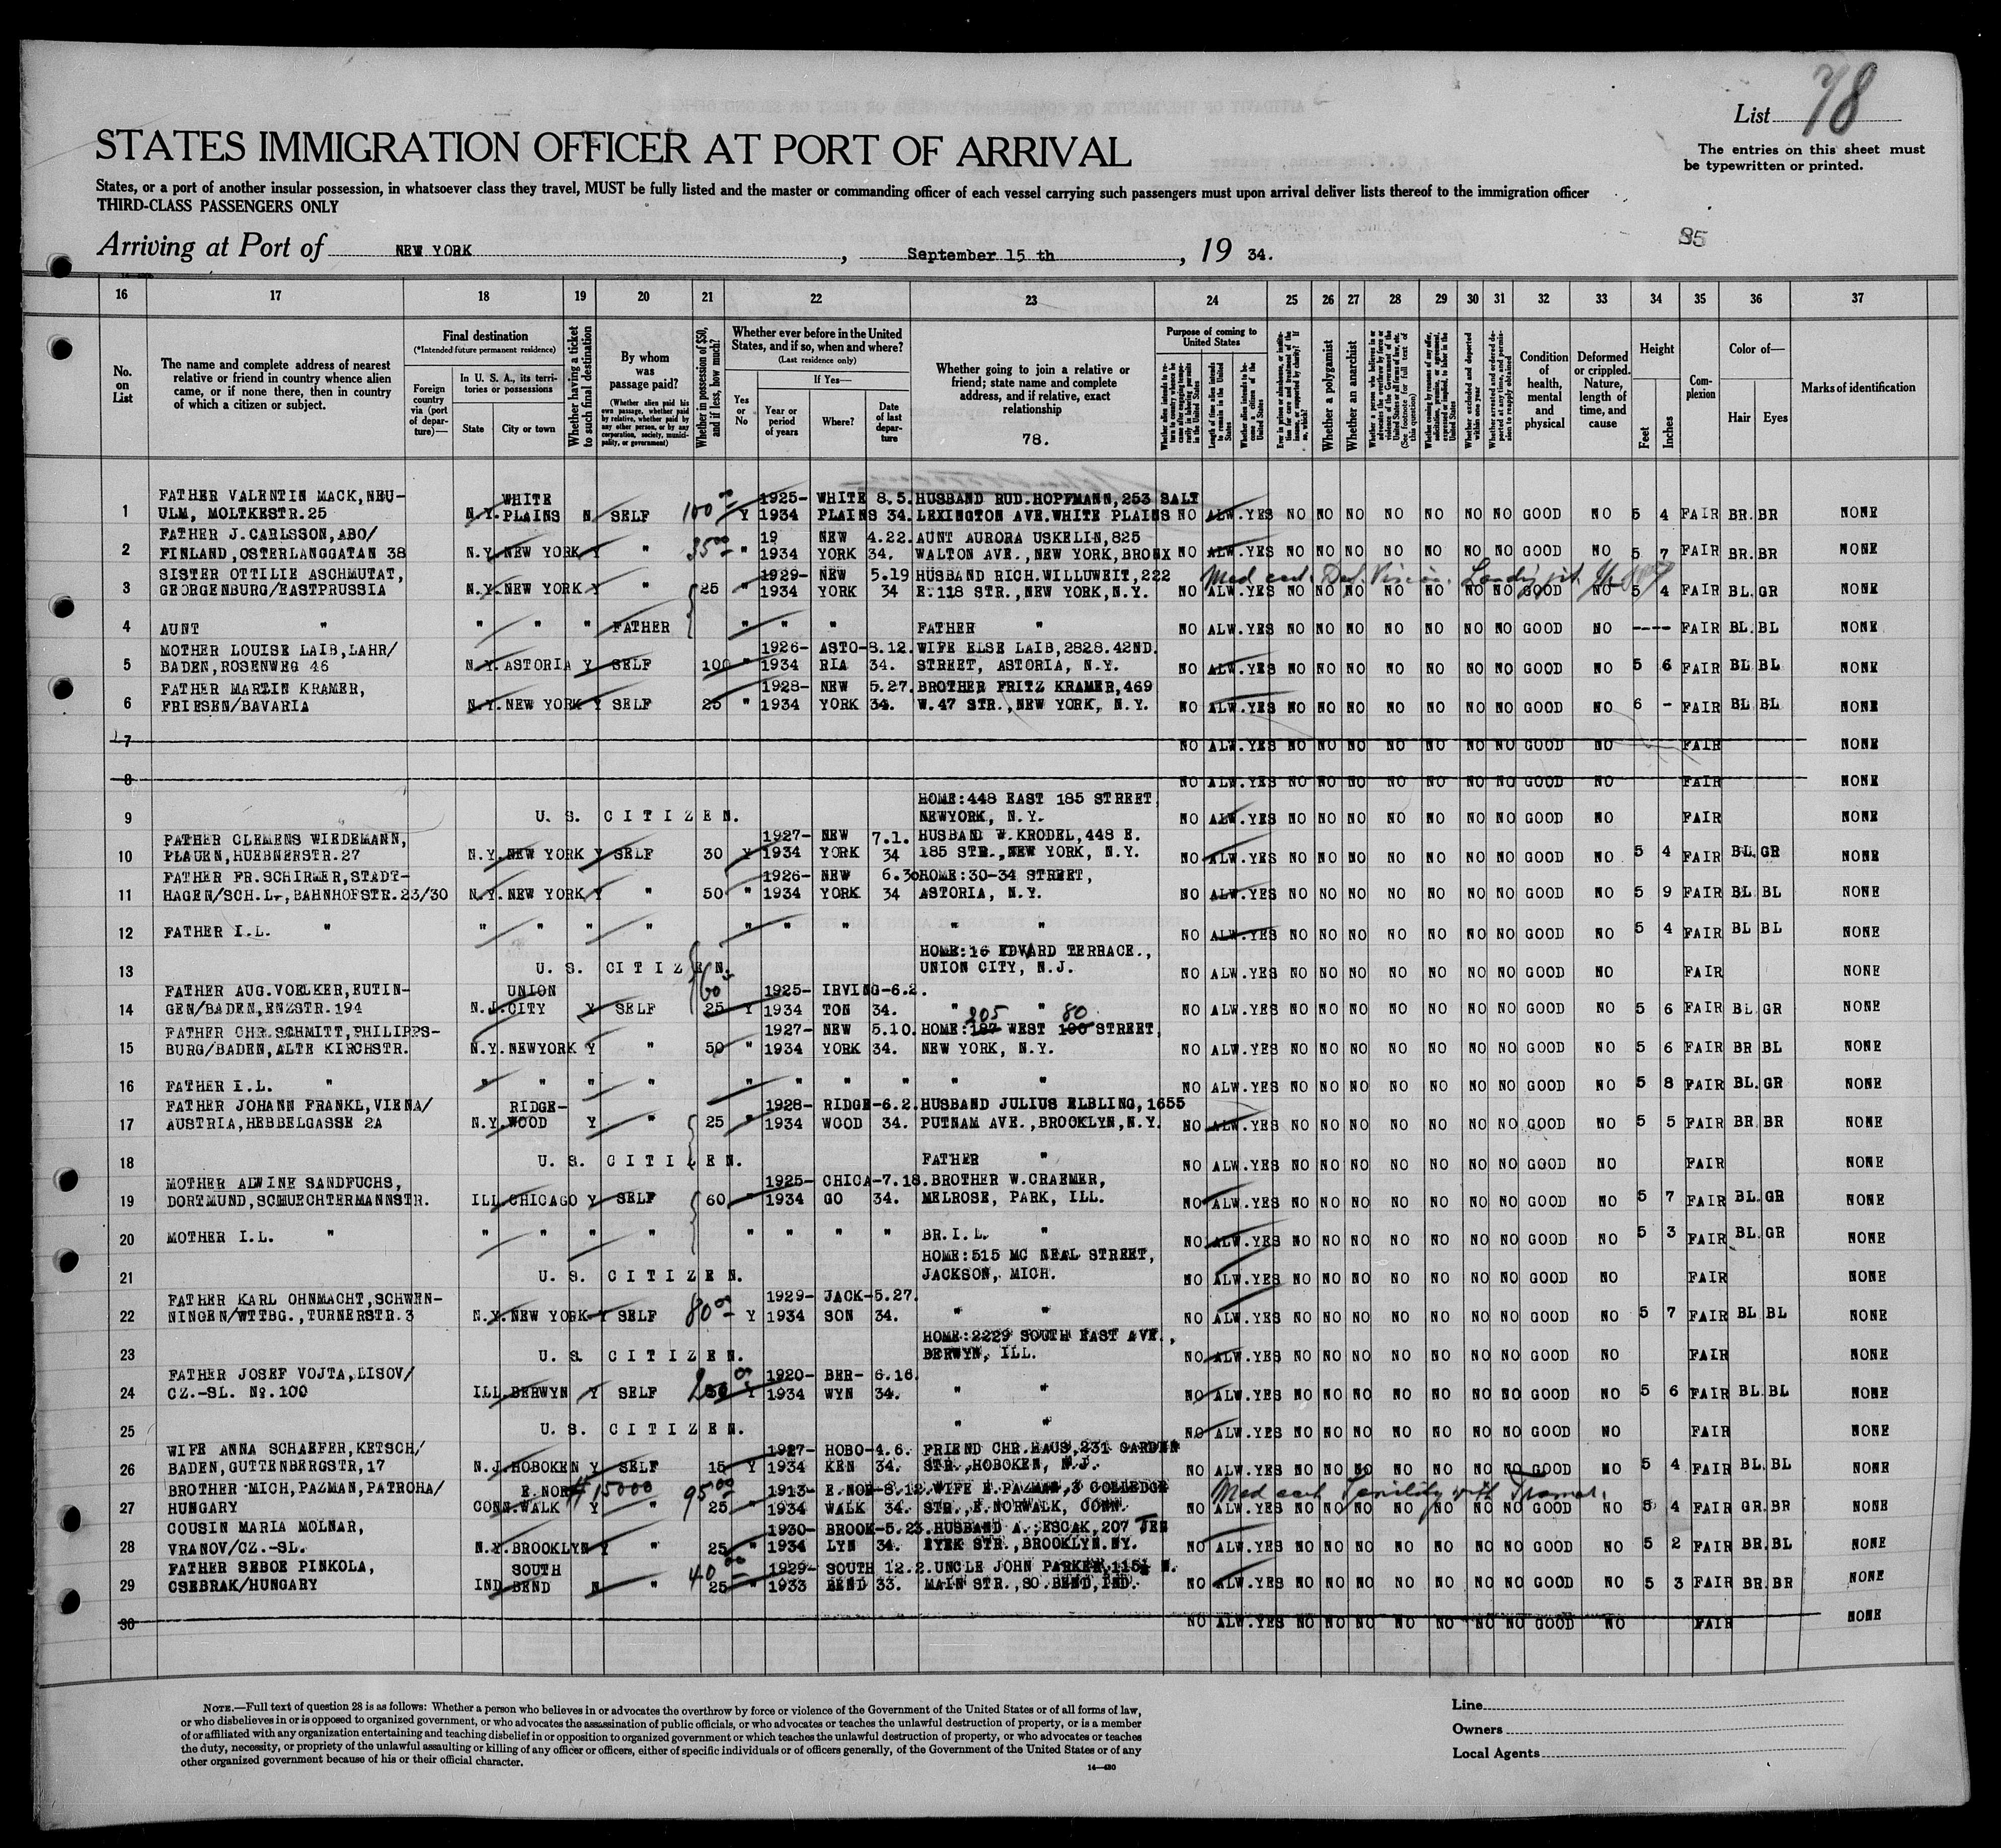 List 78
The entries on this sheet must
be typewritten or printed.
STATES IMMIGRATION OFFICER AT PORT OF ARRIVAL
States, or a port of another insular possession, in whatsoever class they travel, MUST be fully listed and the master or commanding officer of each vessel carrying such passengers must upon arrival deliver lists thereof to the immigration officer
THIRD-CLASS PASSENGERS ONLY
85
Arriving at Port of NEW YORK, September 15 th, 19 34.
16 17 18 19 20 21 22 23 24 25 26 27 28 29 30 31 32 33 34 35 36 37
No. on List
The name and complete address of nearest relative or friend in country whence alien came, or if none there, then in country of which a citizen or subject.
Final destination
(*Intended future permanent residence)
Foreign country via (port of departure)—
In U. S. A., its territories or possessions
State
City or town
Whether having a ticket to such final destination
By whom was passage paid?
(Whether alien paid his own passage, whether paid by relative, whether paid by any other person, or by any corporation, society, municipality, or government)
Whether in possession of $50, and if less, how much?
Whether ever before in the United States, and if so, when and where?
(Last residence only)
Yes or No
If Yes—
Year or period of years
Where?
Date of last departure
Whether going to join a relative or friend; state name and complete address, and if relative, exact relationship
78.
Purpose of coming to United States
Whether alien intends to return to country whence he came after engaging temporarily in laboring pursuits in the United States
Length of time alien intends to remain in the United States
Whether alien intends to become a citizen of the United States
Whether a polygamist
Whether an anarchist
Whether excluded and deported within one year
Condition of health, mental and physical
Deformed or crippled. Nature, length of time, and cause
Height
Feet
Inches
Complexion
Color of—
Hair
Eyes
Marks of identification
FATHER VALENTIN MACK, NEU- WHITE 1925- WHITE 8.5. HUSBAND RUD. HOPFMANN, 253 SALT
1 ULM, MOLTKESTR.25 N.Y. PLAINS N SELF 100 00 Y 1934 PLAINS 34. LEXINGTON AVE. WHITE PLAINS NO ALW. YES NO NO NO NO NO NO NO GOOD NO 5 4 FAIR BR. BR NONE
FATHER J. CARLSSON, ABO/ 19 NEW 4.22. AUNT AURORA USKELIN, 825
2 FINLAND, OSTERLANGGATAN 38 N.Y. NEW YORK Y " 35 00 " 1934 YORK 34. WALTON AVE., NEW YORK, BRONX NO ALW. YES NO NO NO NO NO NO NO GOOD NO 5 7 FAIR BR. BR NONE
SISTER OTTILIE ASCHMUTAT, 1929- NEW 5.19 HUSBAND RICH. WILLUWEIT, 222 Med cert. Def. Vision.
3 GEORGENBURG/EASTPRUSSIA N.Y. NEW YORK Y " 25 " 1934 YORK 34 E. 118 STR., NEW YORK, N.Y. NO ALW. YES NO NO NO NO NO NO NO GOOD NO 5 4 FAIR BL. GR NONE
4 AUNT " " " " FATHER " " " FATHER " NO ALW. YES NO NO NO NO NO NO NO GOOD NO ---- FAIR BL. BL NONE
MOTHER LOUISE LAIB, LAHR/ 1926- ASTO- 8.12. WIFE ELSE LAIB, 2828. 42ND.
5 BADEN, ROSENWEG 46 N.Y. ASTORIA Y SELF 100 " 1934 RIA 34. STREET, ASTORIA, N.Y. NO ALW. YES NO NO NO NO NO NO NO GOOD NO 5 6 FAIR BL BL NONE
FATHER MARTIN KRAMER, 1928- NEW 5.27. BROTHER FRITZ KRAMER, 469
6 FRIESEN/BAVARIA N.Y. NEW YORK Y SELF 25 " 1934 YORK 34. W. 47 STR., NEW YORK, N.Y. NO ALW. YES NO NO NO NO NO NO NO GOOD NO 6 - FAIR BL BL NONE
7 NO ALW. YES NO NO NO NO NO NO NO GOOD NO FAIR NONE
8 NO ALW. YES NO NO NO NO NO NO NO GOOD NO FAIR NONE
HOME: 448 EAST 185 STREET,
9 U. S. CITIZEN. NEWYORK, N.Y. NO ALW. YES NO NO NO NO NO NO NO GOOD NO FAIR NONE
FATHER CLEMENS WIEDEMANN, 1927- NEW 7.1. HUSBAND W. KRODEL, 448 E.
10 PLAUEN, HUEBNERSTR.27 N.Y. NEW YORK Y SELF 30 Y 1934 YORK 34 185 STR., NEW YORK, N.Y. NO ALW. YES NO NO NO NO NO NO NO GOOD NO 5 4 FAIR BL. GR NONE
FATHER FR. SCHIRMER, STADT- 1926- NEW 6.30 HOME: 30-34 STREET,
11 HAGEN/SCH.L., BAHNHOFSTR. 23/30 N.Y. NEW YORK Y " 50 " 1934 YORK 34 ASTORIA, N.Y. NO ALW. YES NO NO NO NO NO NO NO GOOD NO 5 9 FAIR BL BL NONE
12 FATHER I.L. " " " " " " " " " " NO ALW. YES NO NO NO NO NO NO NO GOOD NO 5 4 FAIR BL BL NONE
HOME: 16 EDWARD TERRACE.,
13 U. S. CITIZEN. UNION CITY, N.J. NO ALW. YES NO NO NO NO NO NO NO GOOD NO FAIR NONE
FATHER AUG. VOELKER, EUTIN- UNION 60 1925- IRVING- 6.2.
14 GEN/BADEN, ENZSTR. 194 N.J. CITY Y SELF 25 Y 1934 TON 34. " " NO ALW. YES NO NO NO NO NO NO NO GOOD NO 5 6 FAIR BL GR NONE
205 80
FATHER CHR. SCHMITT, PHILIPPS- 1927- NEW 5.10. HOME: 187 WEST 100 STREET,
15 BURG/BADEN, ALTE KIRCHSTR. N.Y. NEWYORK Y " 50 " 1934 YORK 34. NEW YORK, N.Y. NO ALW. YES NO NO NO NO NO NO NO GOOD NO 5 6 FAIR BR BL NONE
16 FATHER I.L. " " " " " " " " " " " NO ALW. YES NO NO NO NO NO NO NO GOOD NO 5 8 FAIR BL. GR NONE
FATHER JOHANN FRANKL, VIENA/ RIDGE- 1928- RIDGE- 6.2. HUSBAND JULIUS ELBLING, 1655
17 AUSTRIA, HEBBELGASSE 2A N.Y. WOOD Y " 25 " 1934 WOOD 34. PUTNAM AVE., BROOKLYN, N.Y. NO ALW. YES NO NO NO NO NO NO NO GOOD NO 5 5 FAIR BR. BR NONE
18 U. S. CITIZEN. FATHER " NO ALW. YES NO NO NO NO NO NO NO GOOD NO FAIR NONE
MOTHER ALWINE SANDFUCHS, 1925- CHICA- 7.18. BROTHER W. CRAEMER,
19 DORTMUND, SCHUECHTERMANNSTR. ILL. CHICAGO Y SELF 60 " 1934 GO 34. MELROSE, PARK, ILL. NO ALW. YES NO NO NO NO NO NO NO GOOD NO 5 7 FAIR BL. GR NONE
20 MOTHER I.L. " " " " " " " " " BR. I.L. " NO ALW. YES NO NO NO NO NO NO NO GOOD NO 5 3 FAIR BL. GR NONE
HOME: 515 MC NEAL STREET,
21 U. S. CITIZEN. JACKSON, MICH. NO ALW. YES NO NO NO NO NO NO NO GOOD NO FAIR NONE
FATHER KARL OHNMACHT, SCHWEN- 1929- JACK- 5.27.
22 NINGEN/WTTBG., TURNERSTR. 3 N.Y. NEW YORK Y SELF 80 00 Y 1934 SON 34. " " NO ALW. YES NO NO NO NO NO NO NO GOOD NO 5 7 FAIR BL BL NONE
HOME: 2229 SOUTH EAST AVE.,
23 U. S. CITIZEN. BERWYN, ILL. NO ALW. YES NO NO NO NO NO NO NO GOOD NO FAIR NONE
FATHER JOSEF VOJTA, LISOV/ 1920- BER- 6.16.
24 CZ.-SL. No. 100 ILL. BERWYN Y SELF Y 1934 WYN 34. " " NO ALW. YES NO NO NO NO NO NO NO GOOD NO 5 6 FAIR BL. BL NONE
25 U. S. CITIZEN. " " NO ALW. YES NO NO NO NO NO NO NO GOOD NO FAIR NONE
WIFE ANNA SCHAEFER, KETSCH/ 1927- HOBO- 4.6. FRIEND CHR. HAUS, 231 GARDEN
26 BADEN, GUTTENBERGSTR, 17 N.J. HOBOKEN Y SELF 15 Y 1934 KEN 34. STR., HOBOKEN, N.J. NO ALW. YES NO NO NO NO NO NO NO GOOD NO 5 4 FAIR BL. BL NONE
BROTHER MICH, PAZMAN, PATROHA/ E. NOR- # 15000 95 00 1913- E. NOR- 8.12. WIFE E. PAZMAN, 3 COLLEDGE Med cert Senility with
27 HUNGARY CONN. WALK Y " 25 " 1934 WALK 34. STR., E. NORWALK, CONN. NO ALW. YES NO NO NO NO NO NO NO GOOD NO 5 4 FAIR GR. BR NONE
COUSIN MARIA MOLNAR, 1930- BROOK- 5.23. HUSBAND A. JESCAK, 207 TEN
28 VRANOV/CZ.-SL. N.Y. BROOKLYN Y " 25 " 1934 LYN 34. EYEK STR., BROOKLYN. NY. NO ALW. YES NO NO NO NO NO NO NO GOOD NO 5 2 FAIR BR. BL NONE
FATHER SEBOE PINKOLA, SOUTH 40 00 1929- SOUTH 12.2. UNCLE JOHN PARKER, 115½ N.
29 CSEBRAK/HUNGARY IND BEND N " 25 " 1933 BEND 33. MAIN STR., SO. BEND, IND. NO ALW. YES NO NO NO NO NO NO NO GOOD NO 5 3 FAIR BR. BR NONE
30 NO ALW. YES NO NO NO NO NO NO NO GOOD NO FAIR NONE
NOTE.—Full text of question 28 is as follows: Whether a person who believes in or advocates the overthrow by force or violence of the Government of the United States or of all forms of law,
or who disbelieves in or is opposed to organized government, or who advocates the assassination of public officials, or who advocates or teaches the unlawful destruction of property, or is a member
of or affiliated with any organization entertaining and teaching disbelief in or opposition to organized government or which teaches the unlawful destruction of property, or who advocates or teaches
the duty, necessity, or propriety of the unlawful assaulting or killing of any officer or officers, either of specific individuals or of officers generally, of the Government of the United States or of any
other organized government because of his or their official character.
14—430
Line
Owners
Local Agents